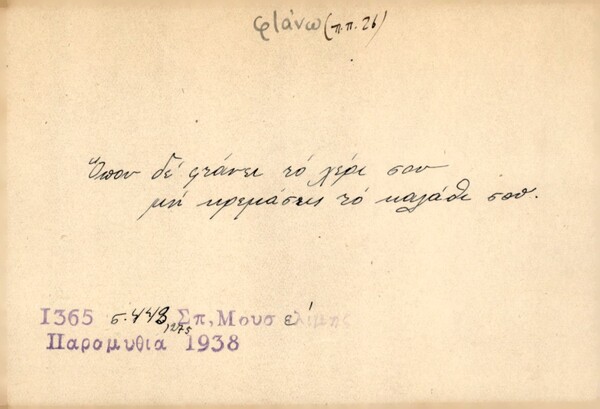 φτάνω (π.π. 26)
Ὅπου δέ φτάνει τό χέρι σου
μή κρεμάσεις τό καλάθι σου.
1365 σ. 448, 1275 Σπ. Μουσελίμης
Παρομυθια 1938